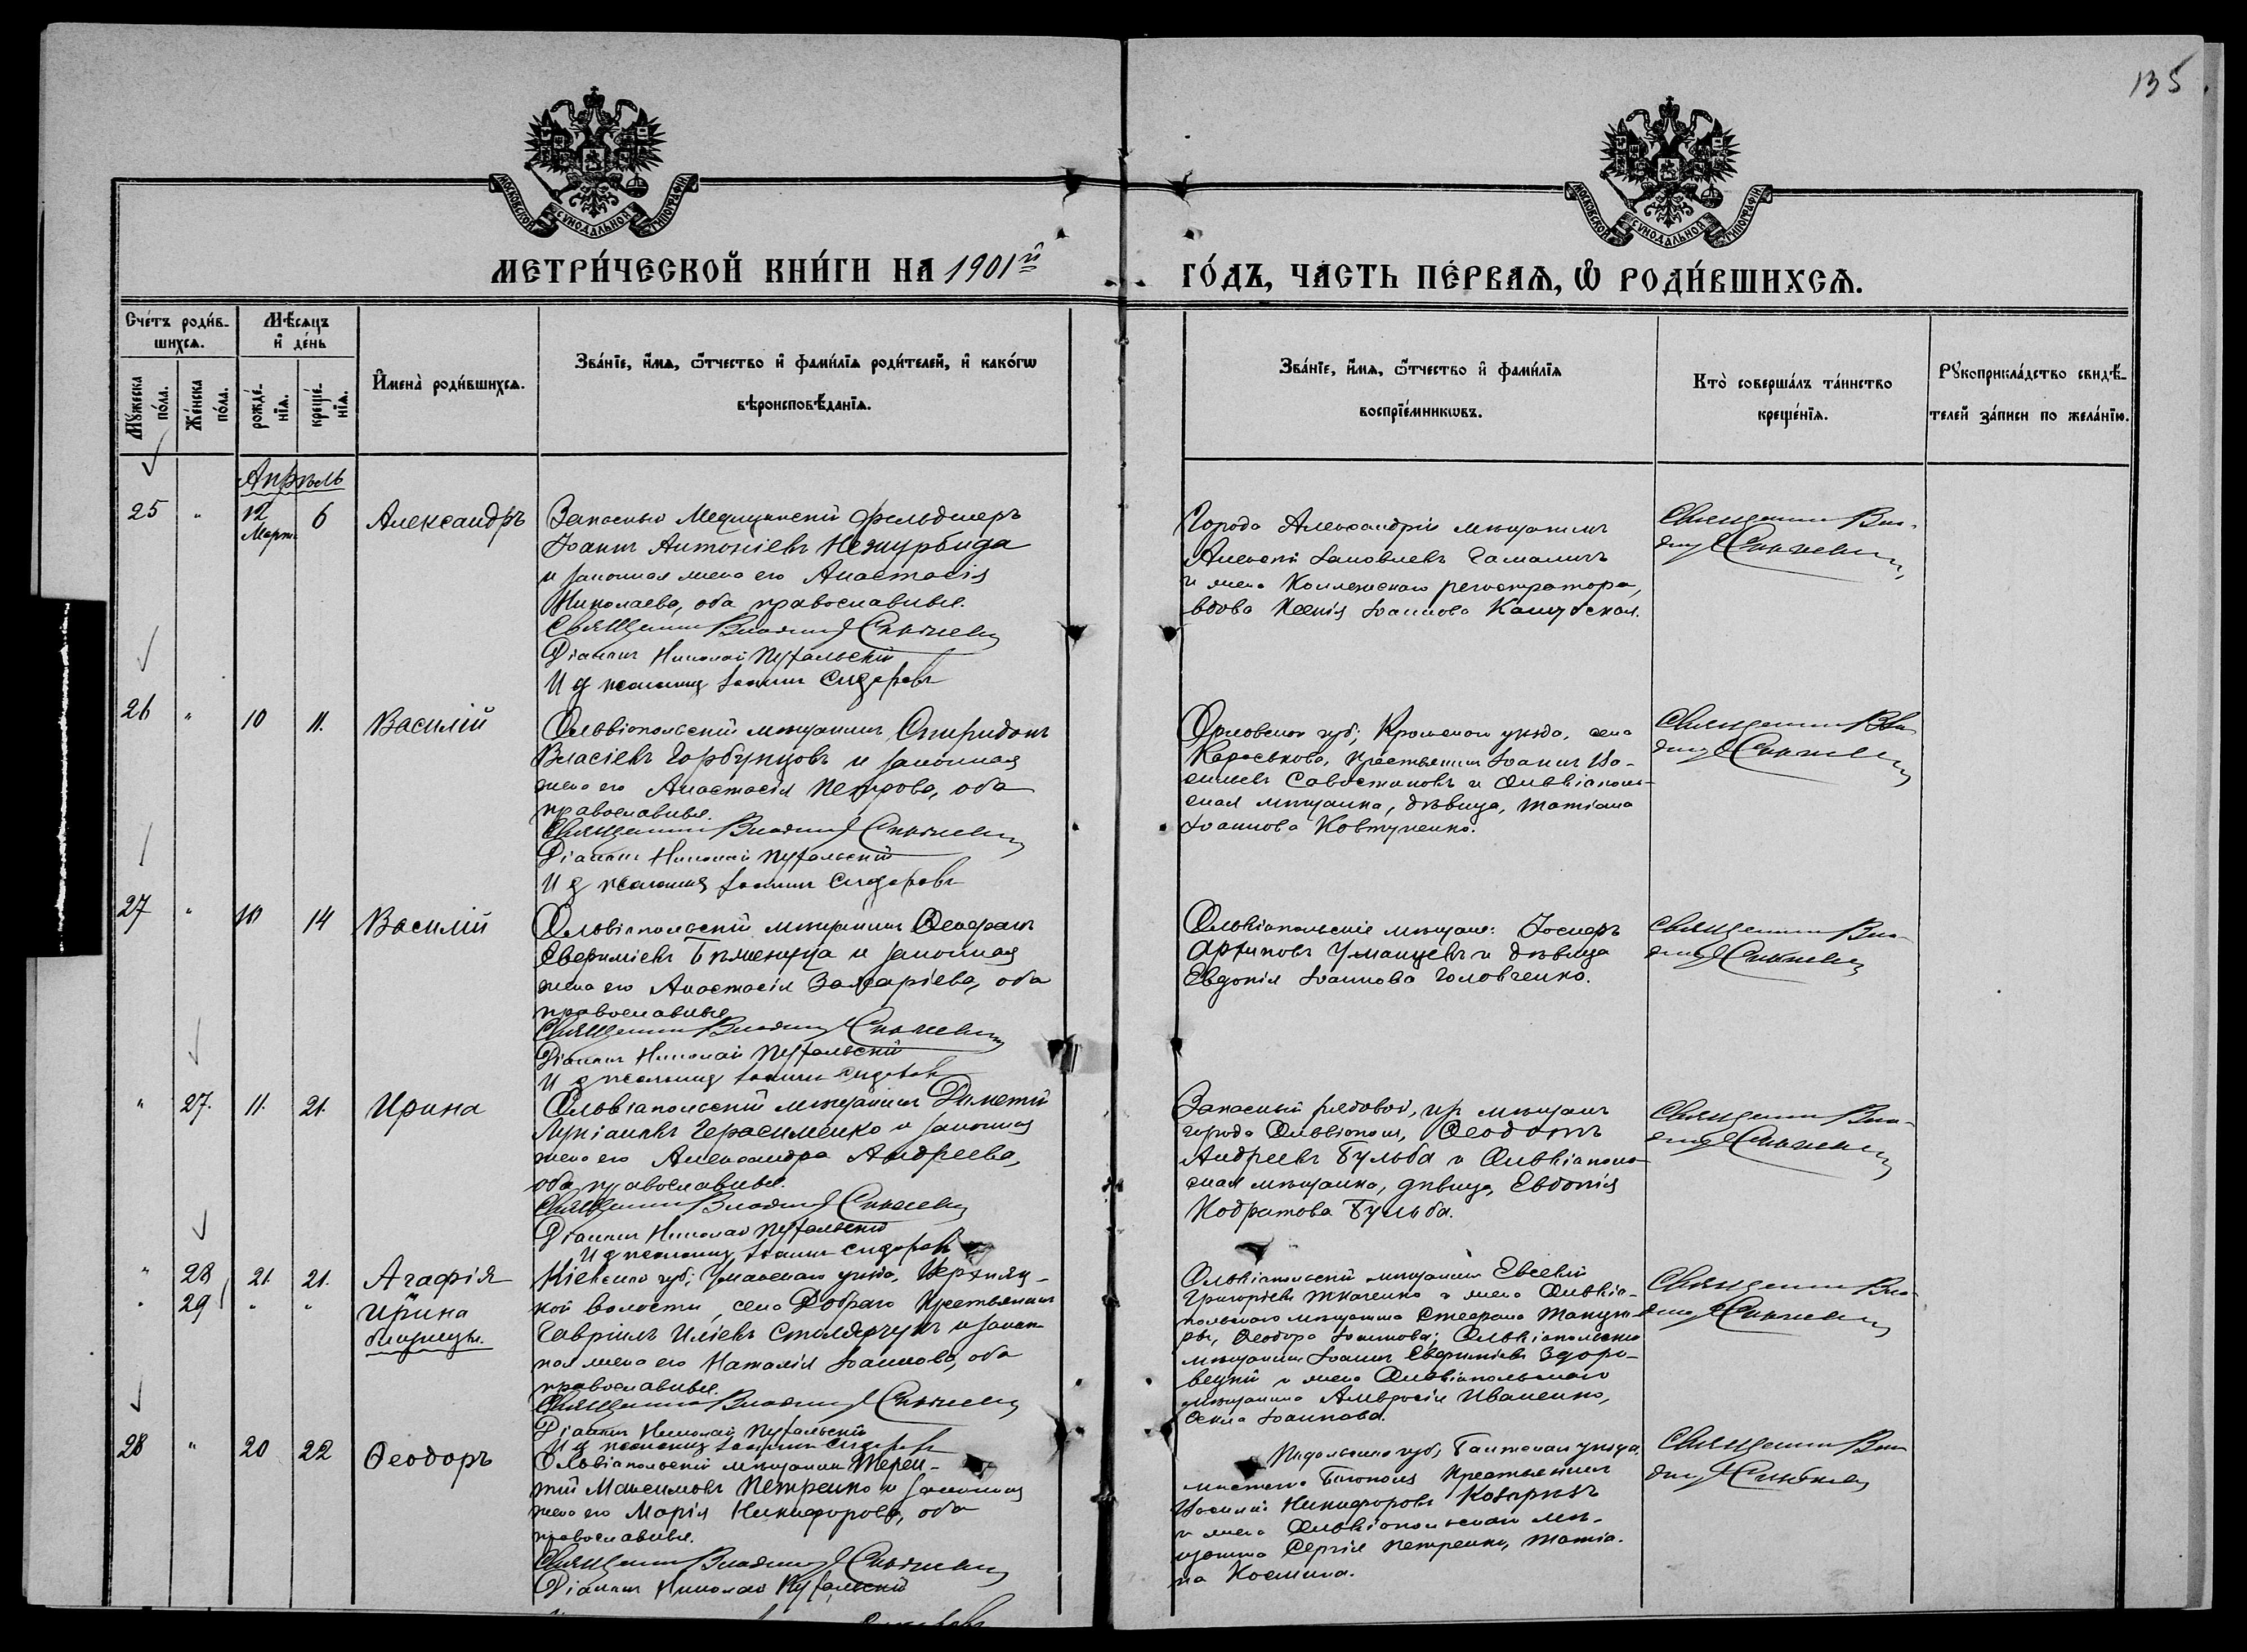 135
МОСКОВСКОЙ СУНОДАЛЬНОЙ ТИПОГРАФІИ
МОСКОВСКОЙ СУНОДАЛЬНОЙ ТИПОГРАФІИ
МЕТРИ́ЧЕСКОЙ КНИ́ГИ НА 1901й
ГО́ДЪ, ЧА́СТЬ ПЕ́РВАѦ, Ѡ РОДИ́ВШИХСѦ.
Сче́тъ роди́в-
шихсѧ.
Мꙋ́жеска по́ла.
Же́нска по́ла.
Мѣ́сѧцъ и де́нь
рожде́-нїѧ.
креще́-нїѧ.
Имена̀ роди́вшихсѧ.
Зва́нїе, и́мѧ, ѻ́тчество и фами́лїѧ роди́телей, и како́гѡ
вѣроисповѣ́данїѧ.
Зва́нїе, и́мѧ, ѻ́тчество и фами́лїѧ
воспрїе́мникѡвъ.
Кто̀ соверша́лъ та́инство
креще́нїѧ.
Рꙋкоприкла́дство свидѣ́-
телей за́писи по жела́нїю.
Апрѣль
25 " 12 Март. 6 Александръ
Запасный Медицинскій фельдшеръ
Іоаннъ Антоніевъ Нежурбида
и законная жена его Анастасія
Николаева, оба православные.
Священникъ Владимір
Діаконъ Николай
И д псаломщ Іоаннъ Сидоровъ
Города Александріи мѣщанинъ
Алексѣй Іаковлевъ Гамаличъ
и жена Коллежскаго регистратора,
вдова Ксенія Іоаннова
Священникъ Вла-
дим
26 " 10 11. Василій
Ольвіопольскій мѣщанинъ Спиридонъ
Власіевъ Горбунцовъ и законная
жена его Анастасія Петрова, оба
православные.
Священникъ Владимір
Діаконъ Николай
И д псаломщ Іоаннъ Сидоровъ
Орловской губ; Кромскаго уѣзда, села
крестьянинъ Іоаннъ Ва-
сильевъ Савостиковъ и Ольвіополь-
ская мѣщанка, дѣвица, Татіана
Іоаннова Ковтуненко.
Священникъ Вла
дим
27 " 10 14 Василій
Ольвіопольскій мѣщанинъ Ѳеофанъ
Евфиміевъ и законная
жена его Анастасія Захаріева, оба
православные
Священникъ Владимір
Діаконъ Николай
И д псаломщ Іоаннъ Сидоровъ
Ольвіопольскіе мѣщане: Іосифъ
Архиповъ Уманцевъ и дѣвица
Евдокія Іоаннова Головченко.
Священникъ Вла-
дим
" 27. 11. 21. Ирина
Ольвіопольскій мѣщанинъ
Герасименко и законная
жена его Александра Андреева,
оба православные.
Священникъ Владимір
Діаконъ Николай
И д псаломщ Іоаннъ Сидоровъ
Запасный рядовой, изъ мѣщанъ
города Ольвіополя, Ѳеодотъ
Андреевъ Бульба и Ольвіополь-
ская мѣщанка, дѣвица, Евдокія
Кодратова Бульба.
Священникъ Вла-
дим
" 28 21. 21. Агафія
" 29 " " Ирина
близнецы.
Кіевской губ; Уманскаго уѣзда, Верхняц-
кой волости, села Добраго крестьянинъ
Гавріилъ Иліевъ Столярчукъ и закон-
ная жена его Наталія Іоаннова, оба
православные.
Священникъ Владимір
Діаконъ Николай
И д псаломщ Іоаннъ Сидоровъ
Ольвіопольскій мѣщанинъ Евсевій
Григоріевъ Ткаченко и жена Ольвіо-
польскаго мѣщанина Стефана
Ѳеодора Іоаннова; Ольвіопольскій
мѣщанинъ Іоаннъ Евфиміевъ Здоро-
вецкій и жена Ольвіопольскаго
мѣщанина Амвросія Иваненко,
Ѳекла Іоаннова.
Священникъ Вла-
дим
28 " 20 22 Ѳеодоръ
Ольвіопольскій мѣщанинъ Терен-
тій Максимовъ Петренко и законная
жена его Марія Никифорова, оба
православные.
Священникъ Владимір
Діаконъ Николай
Подольской губ, Балтскаго уѣзда,
мѣстечка Богополя крестьянинъ
Василій Никифоровъ
и жена Ольвіопольскаго мѣ-
щанина Сергія Петренко, Татіа-
на Космина.
Священникъ Вла
дим